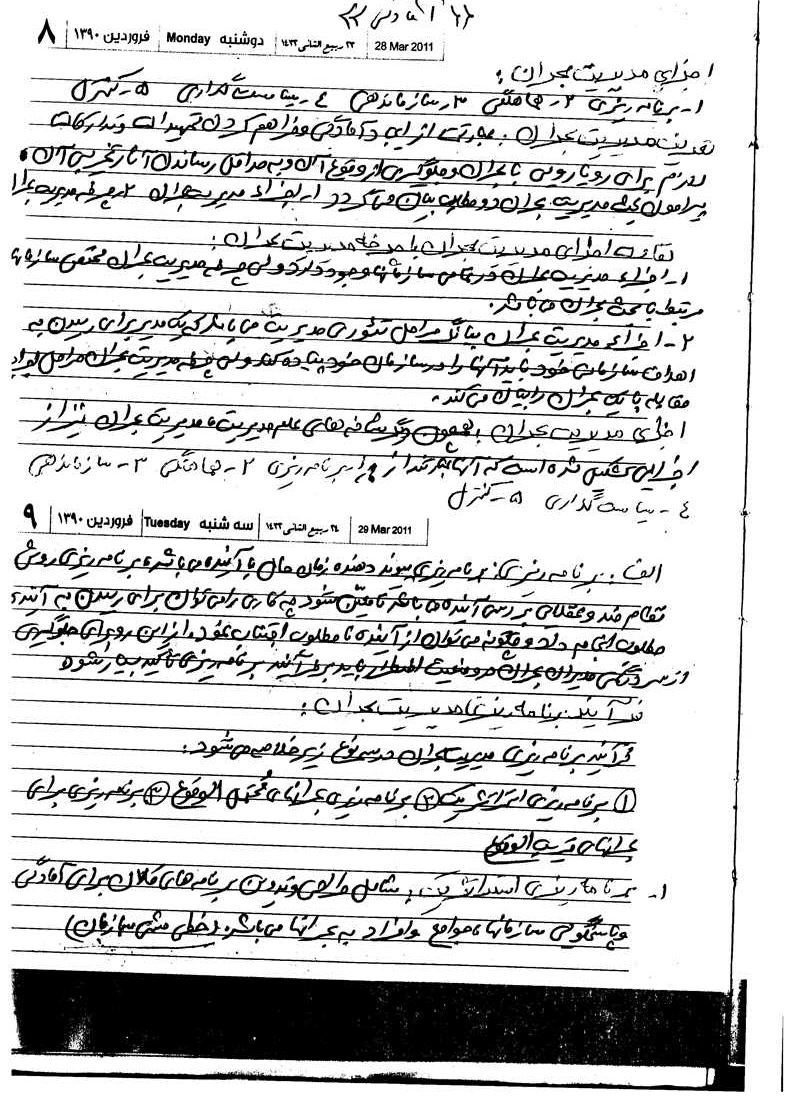 ۸ | دوشنبه Monday فروردین ۱۳۹۰ | ۲۳ ربیع الثانی ۱۴۳۲ | 28 Mar 2011
اجزای مدیریت بحران:
۱- برنامه ریزی ۲- هماهنگی ۳- سازماندهی ۴- سیاست گذاری ۵- کنترل
تعریف مدیریت بحران: عبارت از ایجاد آمادگی و فراهم کردن تمهیدات و تدارکات
لازم برای رویارویی با بحران و جلوگیری از وقوع آن و به حداقل رساندن آثار تخریبی آن.
پیرامون مدیریت بحران دو مطلب بیان می گردد ۱- اجزاء مدیریت بحران ۲- چرخه مدیریت بحران
تفاوت اجزای مدیریت بحران با چرخه مدیریت بحران:
۱- اجزاء مدیریت بحران در تمامی سازمانها وجود دارد ولی چرخه مدیریت بحران مختص سازمانهای
مرتبط با بحث بحران می باشد.
۲- اجزاء مدیریت بحران بیانگر مراحل تئوری مدیریت می باشد که یک مدیر برای رسیدن به
اهداف سازمانی خود باید آنها را در سازمان خود پیاده کند ولی چرخه مدیریت بحران مراحل
مقابله با یک بحران را بیان می کند.
اجزای مدیریت بحران: همچون دیگر شاخه های علم مدیریت، مدیریت بحران نیز از
اجزایی تشکیل شده است که آنها عبارتند از: ۱- برنامه ریزی ۲- هماهنگی ۳- سازماندهی
۴- سیاست گذاری ۵- کنترل
۹ | سه شنبه Tuesday فروردین ۱۳۹۰ | ۲۴ ربیع الثانی ۱۴۳۲ | 29 Mar 2011
الف: برنامه ریزی: برنامه ریزی پیوند دهنده زمان حال با آینده می باشد، برنامه ریزی روش
نظام مند و عقلایی بررسی آینده می باشد تا معین شود چه کاری را می توان برای رسیدن به آینده
مطلوب انجام داد و چگونه می توان از آینده نامطلوب اجتناب نمود، از این رو برای جلوگیری
از مدیران بحران در وضعیت اضطرار باید بر فرآیند برنامه ریزی تأکید بسیار شود
فرآیند برنامه ریزی مدیریت بحران:
فرآیند برنامه ریزی مدیریت بحران در سه نوع زیر خلاصه می شود:
① برنامه ریزی استراتژیک ② برنامه ریزی بحرانهای محتمل الوقوع ③ برنامه ریزی برای
بحرانهای قریب الوقوع
۱- برنامه ریزی استراتژیک: شامل طراحی و تدوین برنامه های کلان برای آمادگی
و پاسخگویی سازمانها، جوامع و افراد به بحرانها می باشد. (خطی مشی سازمان)